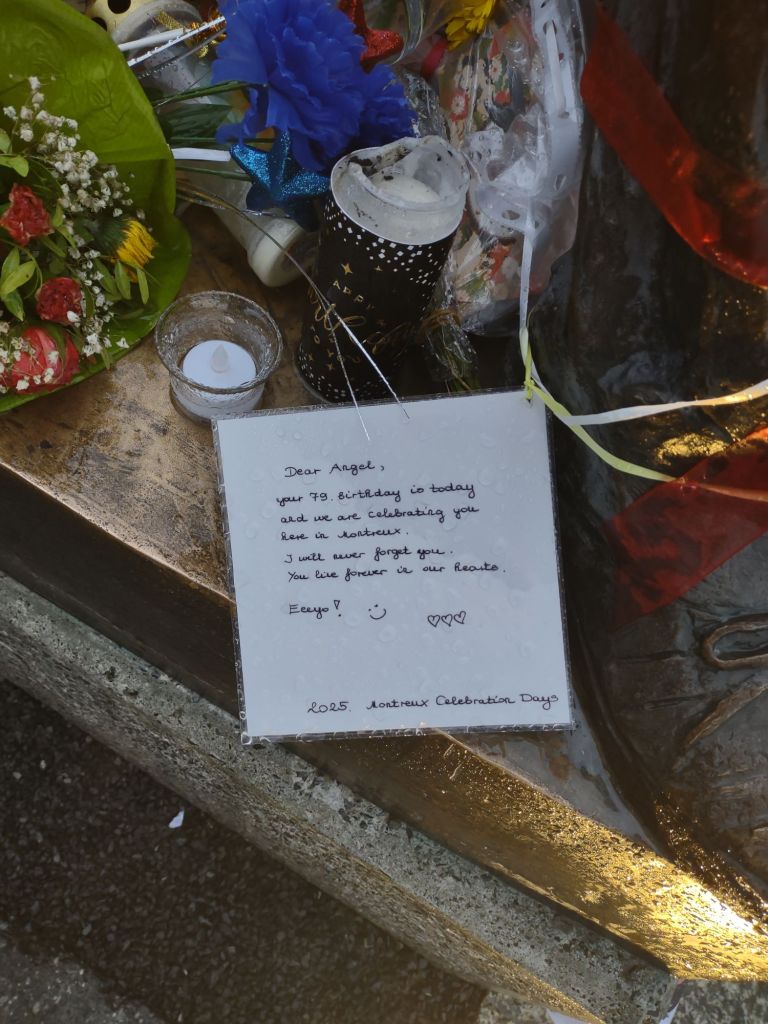 Dear Angel,
your 79. Birthday is today
and we are celebrating you
here in Montreux.
I will never forget you.
You live forever in our hearts.
Eeeyo!
2025. Montreux Celebration Days